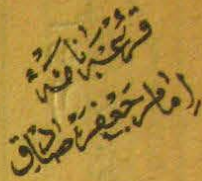 قرعه نامهٔ
امام جعفر صادق